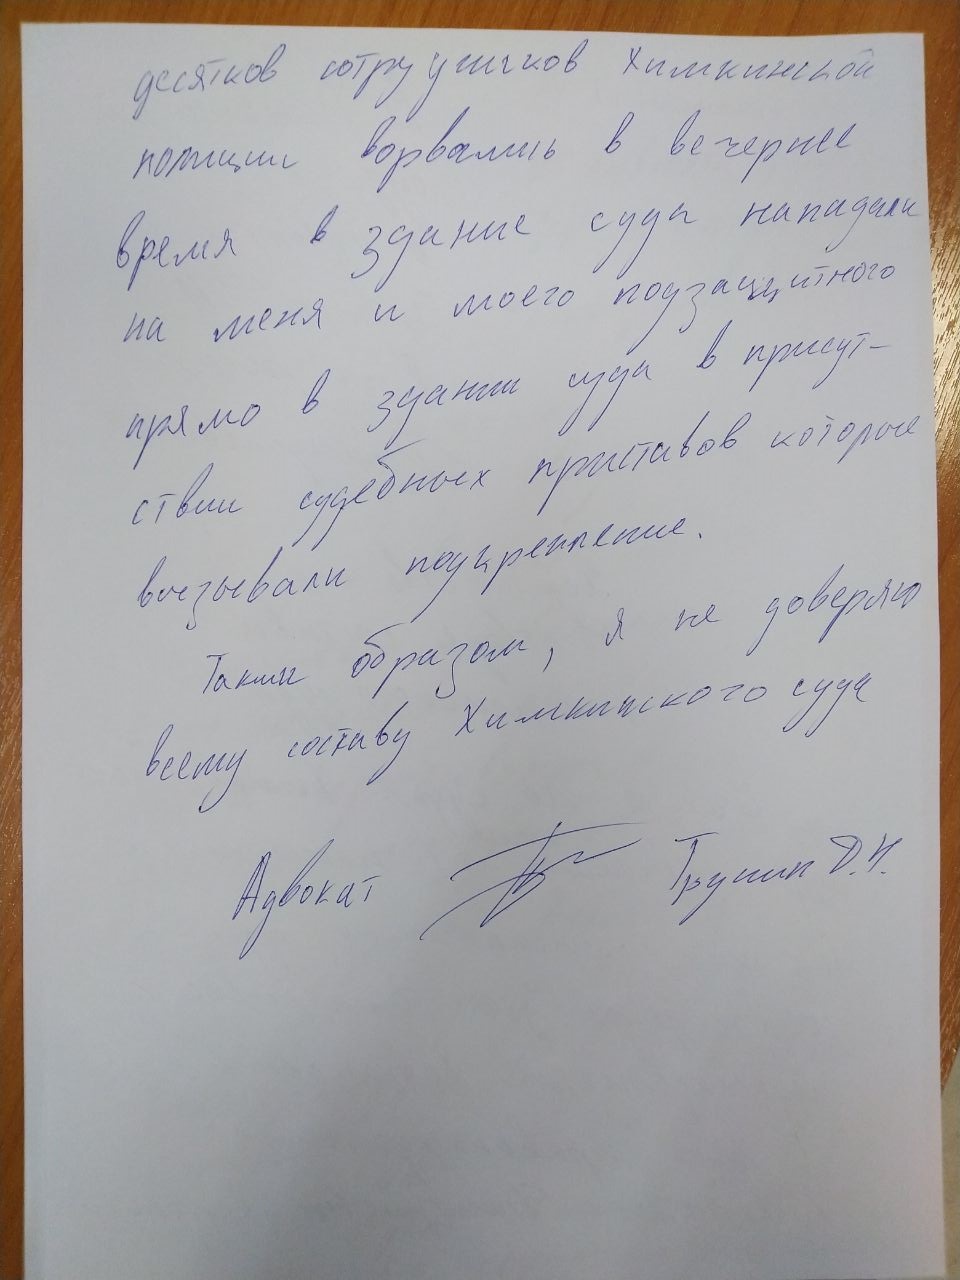 десятков сотрудников Химкинской
полиции ворвались в вечернее
время в здание суда нападали
на меня и моего подзащитного
прямо в здании суда в присут-
ствии судебных приставов которые
вызывали подкрепление.
Таким образом, я не доверяю
всему составу Химкинского суда
Адвокат Трунин Д.Н.